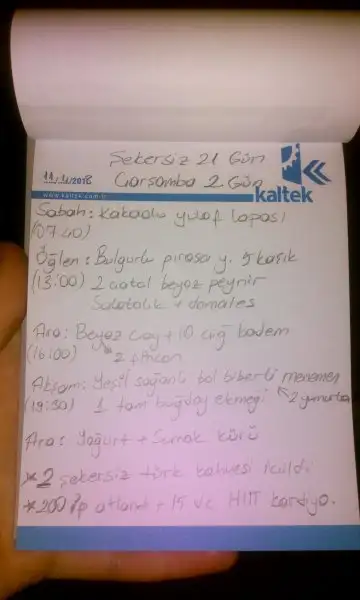 Şekersiz 21 Gün
11/4/2018 Çarşamba 2. Gün
www.kaltek.com.tr
kaltek
Sabah: Kakaolu yulaf lapası
(07:40)
Öğlen: Bulgurlu pırasa y. 5 kaşık
(13:00) 2 çatal beyaz peynir
Salatalık + domates
Ara: Beyaz çay + 10 çiğ badem
(16:00) 2 fincan
Akşam: Yeşil soğanlı bol biberli menemen
(19:30) 1 tam buğday ekmeği 2 yumurta
Ara: Yoğurt + Sumak kürü
* 2 şekersiz türk kahvesi içildi
* 200 ip atlama + 15 HIIT kardiyo.